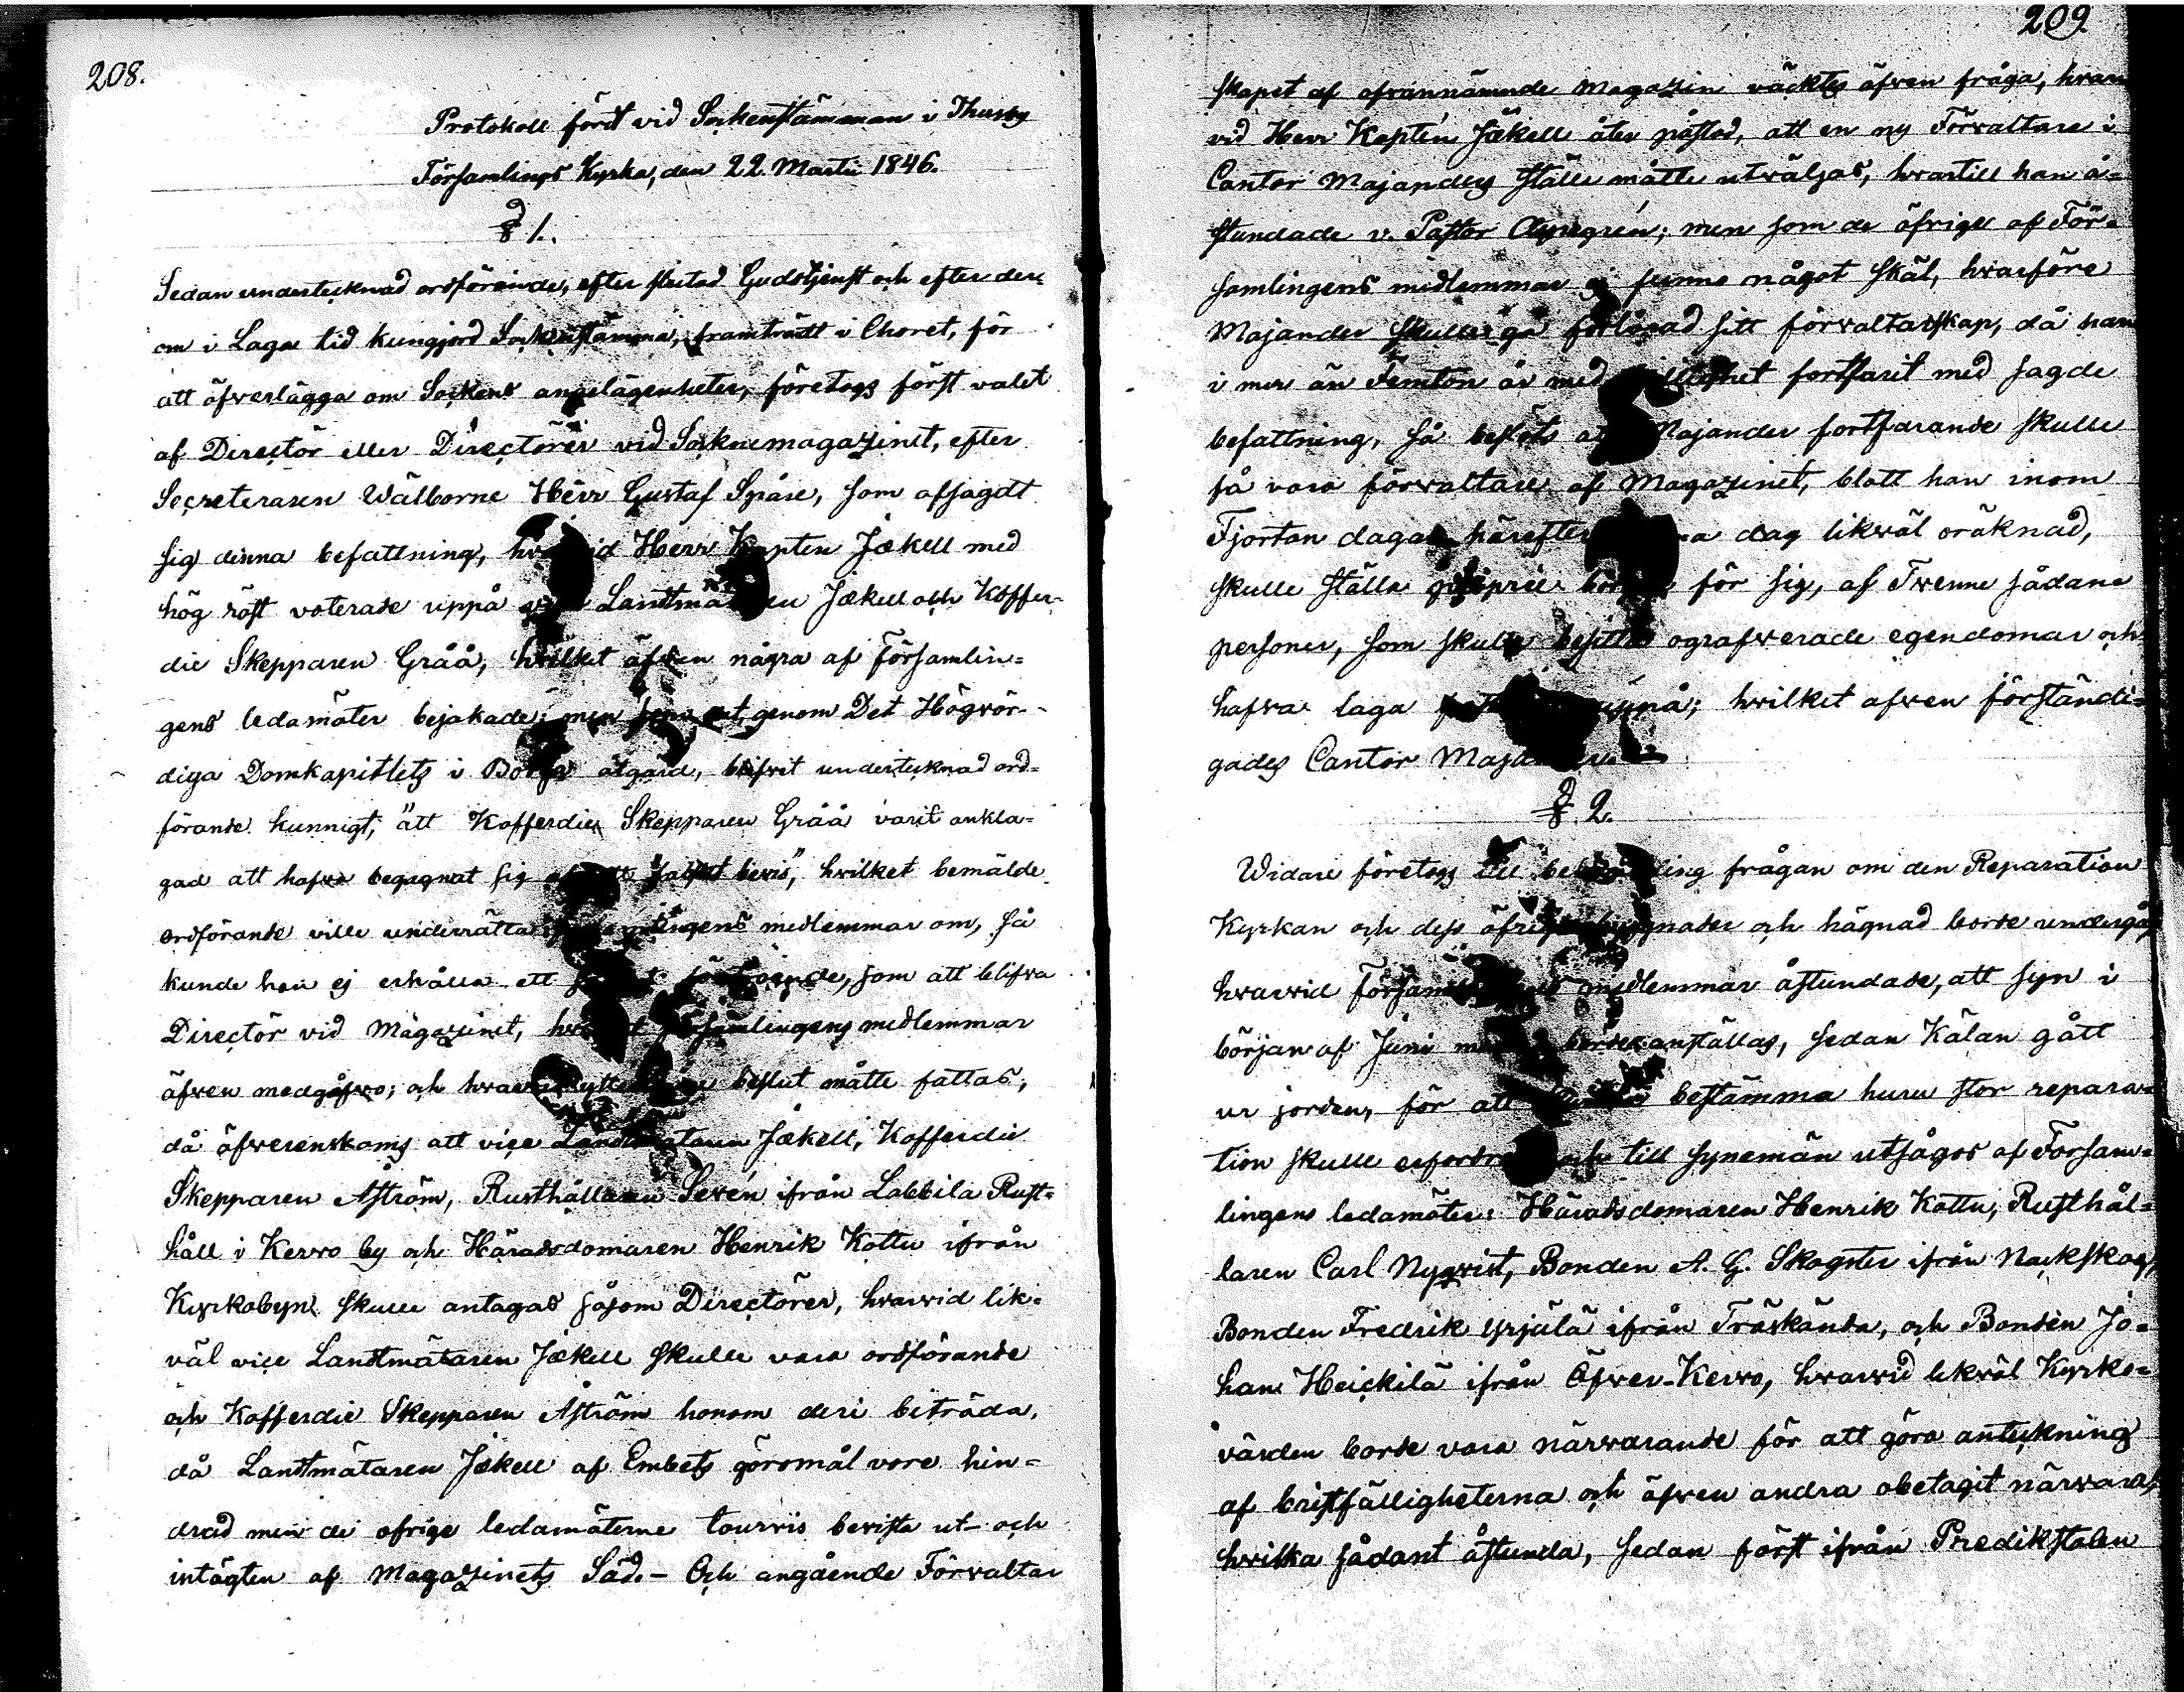 208.
Protokoll fördt vid Sockenstämman i Thusby
Församlings Kyrka, den 22. Martii 1846.
§ 1.
Sedan undertecknad ordförande, efter slutad Gudstjenst och efter der-
om i Laga tid kungjord Sockenstämma, framträdt i Choret, för
att öfverlägga om Sockens angelägenheter, företogs först valet
af Directör eller Directörer vid Socknemagazinet, efter
Secreteraren Wälborne Herr Gustaf Spåre, som afsagdt
sig denna befattning, Herr Kapten Jækell med
hög röst voterade uppå Landtmätaren Jækell och Koffer-
die Skepparen Gråå, hvilket äfven några af Församlin-
gens ledamöter bejakade; men genom Det Högvör-
diga Domkapitlets i Borgå åtgärd, blifvit undertecknad ord-
förande kunnigt, "att Kofferdie Skepparen Gråå varit ankla-
gad att hafva begagnat sig af ett falskt bevis", hvilket bemälde
ordförande ville underrätta Församlingens medlemmar om, så
kunde han ej erhålla ett förtroende, som att blifva
Directör vid Magazinet, hvilket Församlingens medlemmar
äfven medgåfvo; och beslut måtte fattas,
då öfverenskoms att vice Landtmätaren Jækell, Kofferdie
Skepparen Åström, Rusthållaren Sevén ifrån Labbila Rust-
håll i Kervo by och Häradsdomaren Henrik Kottu ifrån
Kyrkobyn skulle antagas såsom Directörer, hvarvid lik-
väl vice Landtmätaren Jækell skulle vara ordförande
och Kofferdie Skepparen Åström honom deri biträda,
då Landtmätaren Jækell af Embets göromål vore hin-
drad men de öfrige ledamöterne tourvis bevista ut- och
intägten af Magazinets Säd. - Och angående Förvaltar
209.
skapet af ofvannämnde Magazin väcktes äfven fråga, hvar
vid Herr Kapten Jækell åter påstod, att en ny Förvaltare i
Cantor Majanders ställe måtte utväljas, hvartill han å-
stundade v. Pastor; men som de öfrige af För-
samlingens medlemmar ej funno något skäl, hvarföre
Majander skulle gå förlorad sitt förvaltarskap, då han
i mer än Femton år med fortfarit med sagde
befattning, så beslöts att Majander fortfarande skulle
få vara förvaltare af Magazinet, blott han inom
Fjorton dagar härefter dag likväl oräknad,
skulle ställa för sig, af Tvenne sådana
personer, som skulle besitta ografverade egendomar och
hafva laga uppå; hvilket äfven förständi-
gades Cantor Majander.
§. 2.
Widare företogs till behandling frågan om den Reparation
Kyrkan och dess öfriga byggnader och hägnad borde undergå,
hvarvid Församlingens medlemmar åstundade, att syn i
början af Juni borde anställas, sedan Kälan gått
ur jorden, för att bestämma huru stor repara-
tion skulle erfordras och till synemän utsågos af Försam-
lingens ledamöter: Häradsdomaren Henrik Kottu, Rusthål-
laren Carl Nyqvist, Bonden A. G. Skogster ifrån Nackskog,
Bonden Fredrik Yrjälä ifrån Träskända, och Bonden Jo-
han Heickilä ifrån Öfver-Kervo, hvarvid likväl Kyrko-
värden borde vara närvarande för att göra anteckning
af bristfälligheterna och äfven andra obetagit närvara,
hvilka sådant åstunda, sedan först ifrån Predikstolen